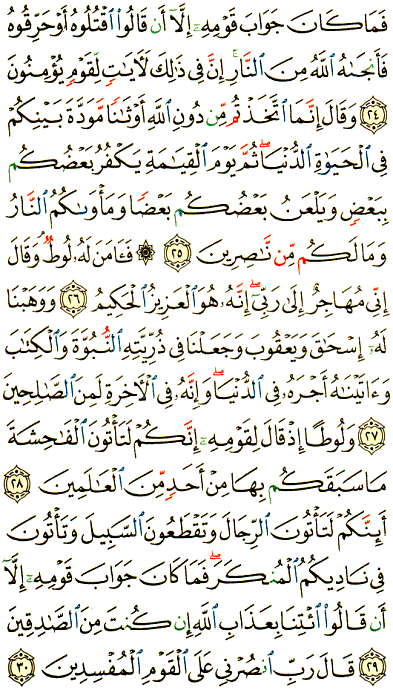 فَمَا كَانَ جَوَابَ قَوْمِهِۦٓ إِلَّآ أَن قَالُوا۟ ٱقْتُلُوهُ أَوْ حَرِّقُوهُ
فَأَنجَىٰهُ ٱللَّهُ مِنَ ٱلنَّارِ ۚ إِنَّ فِى ذَٰلِكَ لَءَايَٰتٍ لِّقَوْمٍ يُؤْمِنُونَ
﴿٢٤﴾ وَقَالَ إِنَّمَا ٱتَّخَذْتُم مِّن دُونِ ٱللَّهِ أَوْثَٰنًا مَّوَدَّةَ بَيْنِكُمْ
فِى ٱلْحَيَوٰةِ ٱلدُّنْيَا ۖ ثُمَّ يَوْمَ ٱلْقِيَٰمَةِ يَكْفُرُ بَعْضُكُم
بِبَعْضٍ وَيَلْعَنُ بَعْضُكُم بَعْضًا وَمَأْوَىٰكُمُ ٱلنَّارُ
وَمَا لَكُم مِّن نَّٰصِرِينَ ﴿٢٥﴾ ۞ فَـَٔامَنَ لَهُۥ لُوطٌ ۘ وَقَالَ
إِنِّى مُهَاجِرٌ إِلَىٰ رَبِّىٓ ۖ إِنَّهُۥ هُوَ ٱلْعَزِيزُ ٱلْحَكِيمُ ﴿٢٦﴾ وَوَهَبْنَا
لَهُۥٓ إِسْحَٰقَ وَيَعْقُوبَ وَجَعَلْنَا فِى ذُرِّيَّتِهِ ٱلنُّبُوَّةَ وَٱلْكِتَٰبَ
وَءَاتَيْنَٰهُ أَجْرَهُۥ فِى ٱلدُّنْيَا ۖ وَإِنَّهُۥ فِى ٱلْءَاخِرَةِ لَمِنَ ٱلصَّٰلِحِينَ
﴿٢٧﴾ وَلُوطًا إِذْ قَالَ لِقَوْمِهِۦٓ إِنَّكُمْ لَتَأْتُونَ ٱلْفَٰحِشَةَ
مَا سَبَقَكُم بِهَا مِنْ أَحَدٍ مِّنَ ٱلْعَٰلَمِينَ ﴿٢٨﴾
أَئِنَّكُمْ لَتَأْتُونَ ٱلرِّجَالَ وَتَقْطَعُونَ ٱلسَّبِيلَ وَتَأْتُونَ
فِى نَادِيكُمُ ٱلْمُنكَرَ ۖ فَمَا كَانَ جَوَابَ قَوْمِهِۦٓ إِلَّآ
أَن قَالُوا۟ ٱئْتِنَا بِعَذَابِ ٱللَّهِ إِن كُنتَ مِنَ ٱلصَّٰدِقِينَ
﴿٢٩﴾ قَالَ رَبِّ ٱنصُرْنِى عَلَى ٱلْقَوْمِ ٱلْمُفْسِدِينَ ﴿٣٠﴾